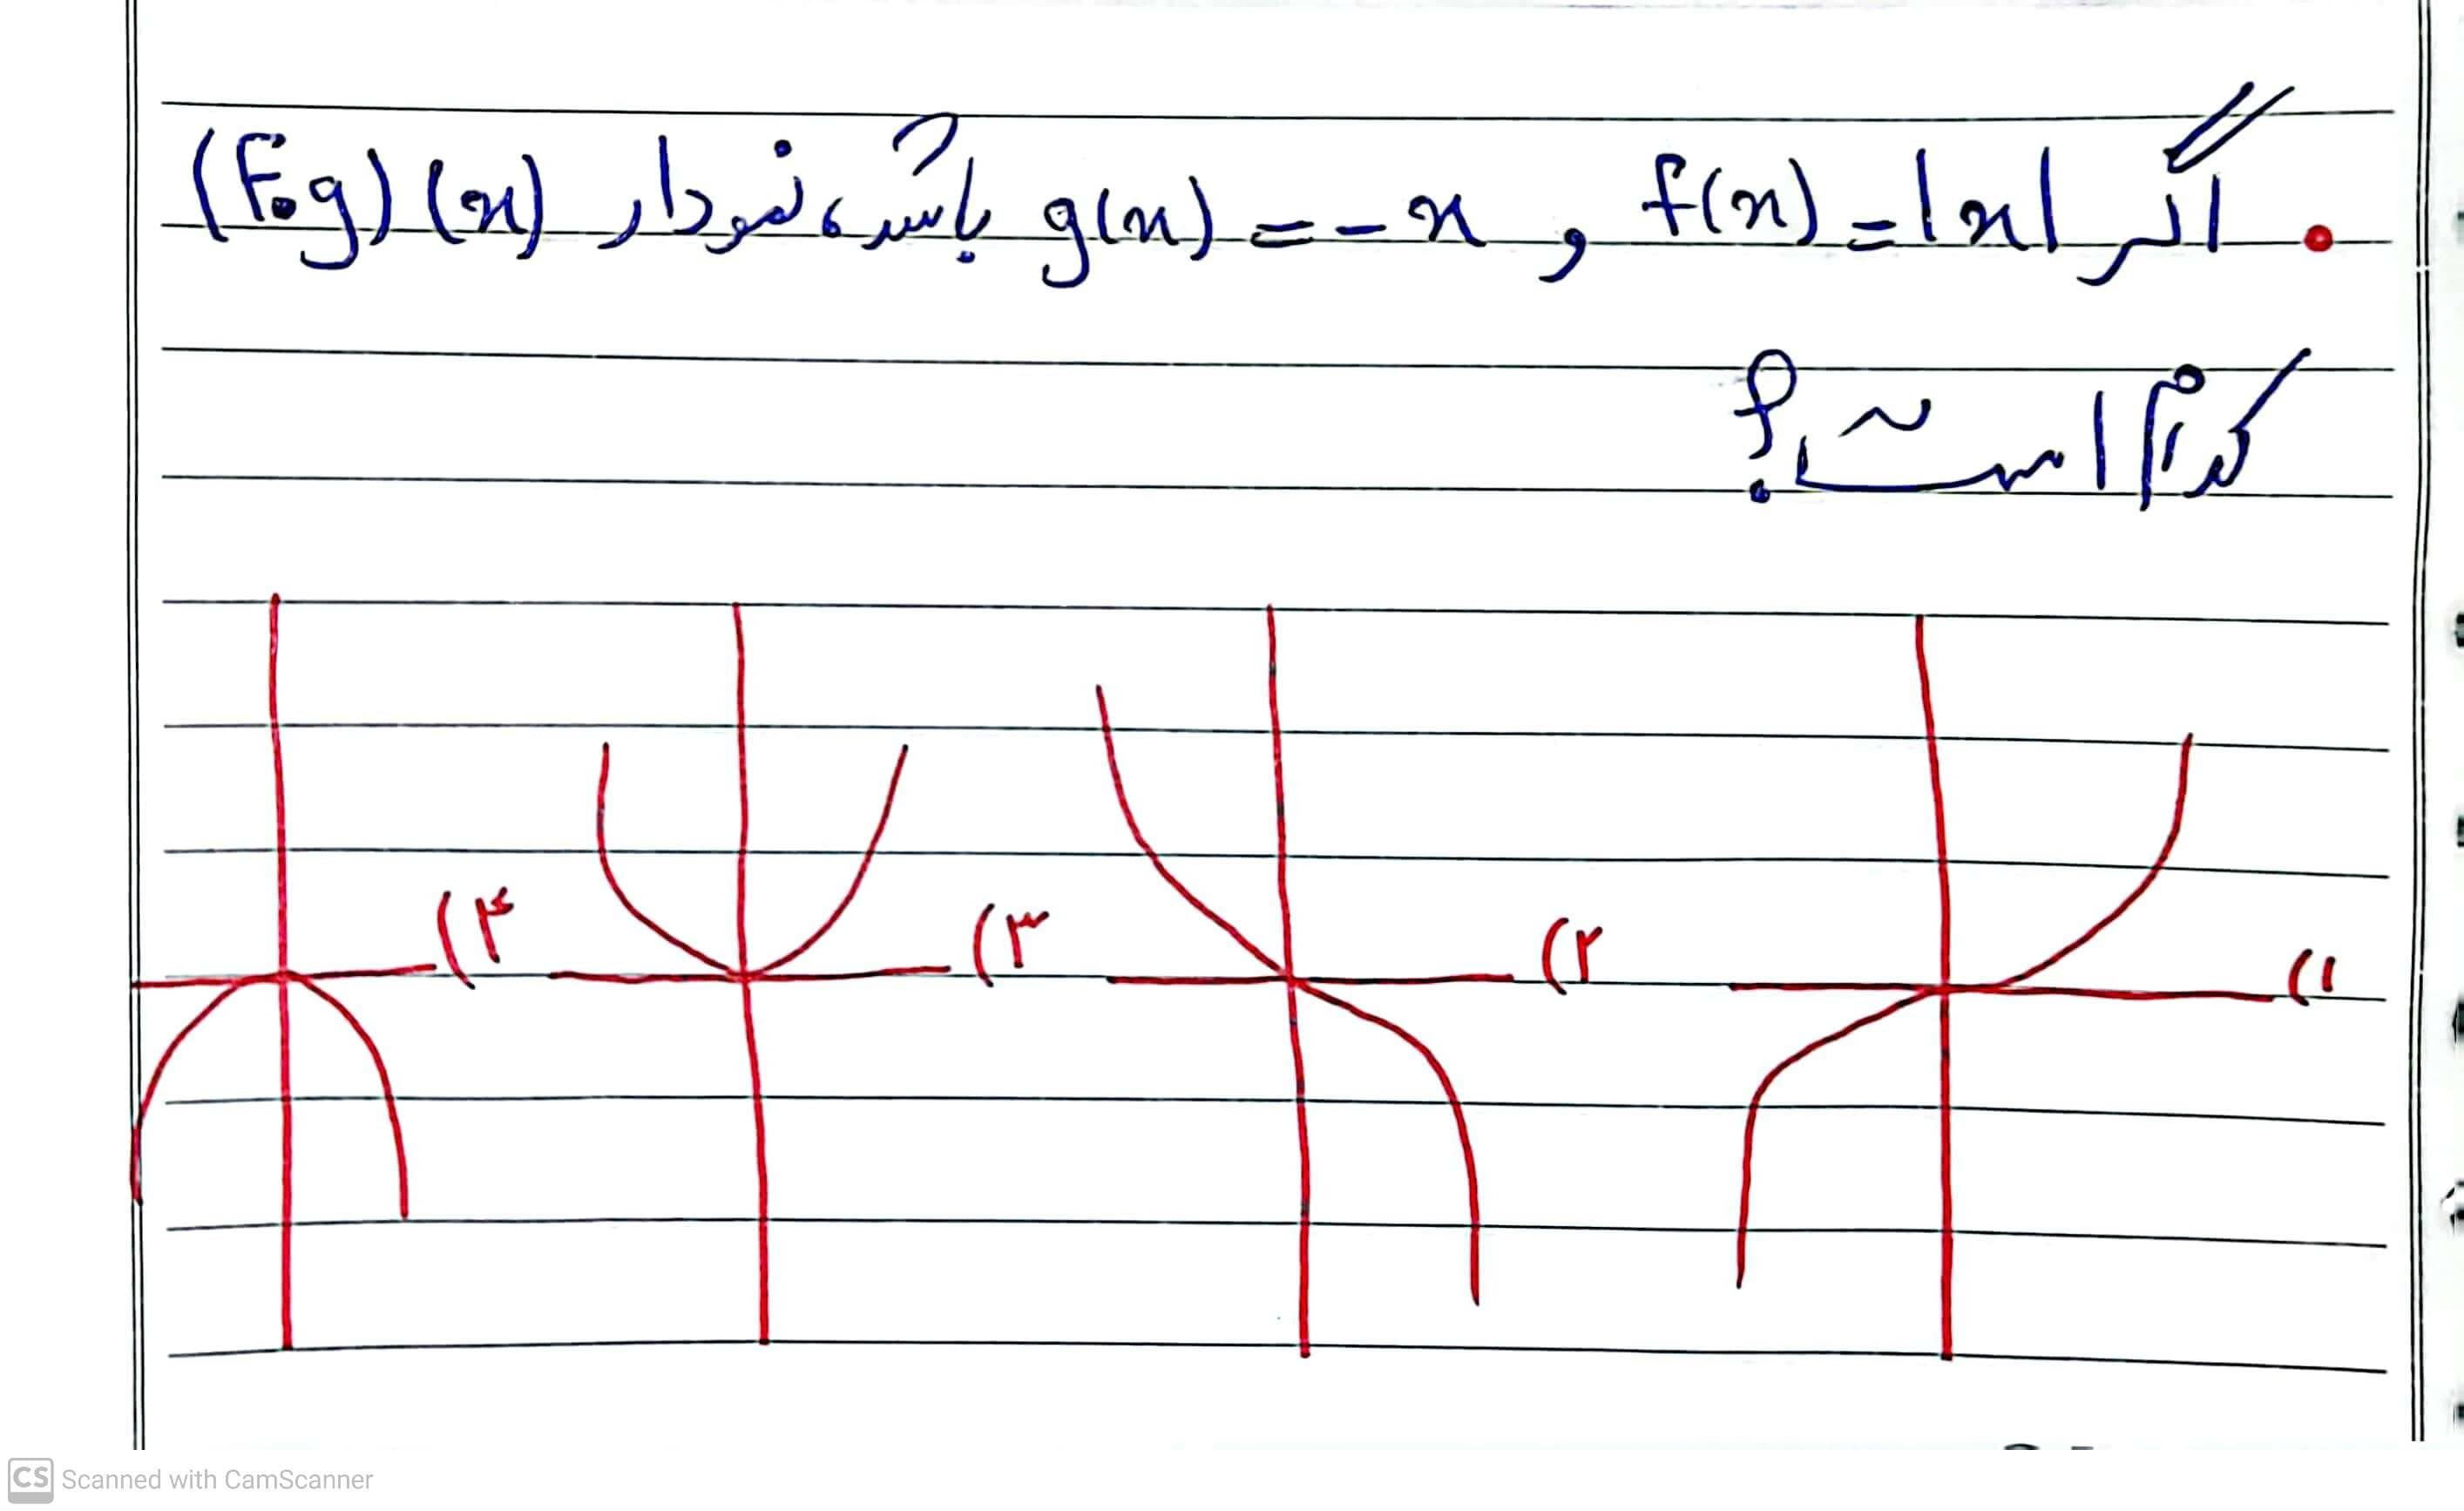 اگر f(x) = |x| و g(x) = -x باشد، نمودار (Fog)(x)
کدام است؟
۱)
۲)
۳)
۴)
CS Scanned with CamScanner